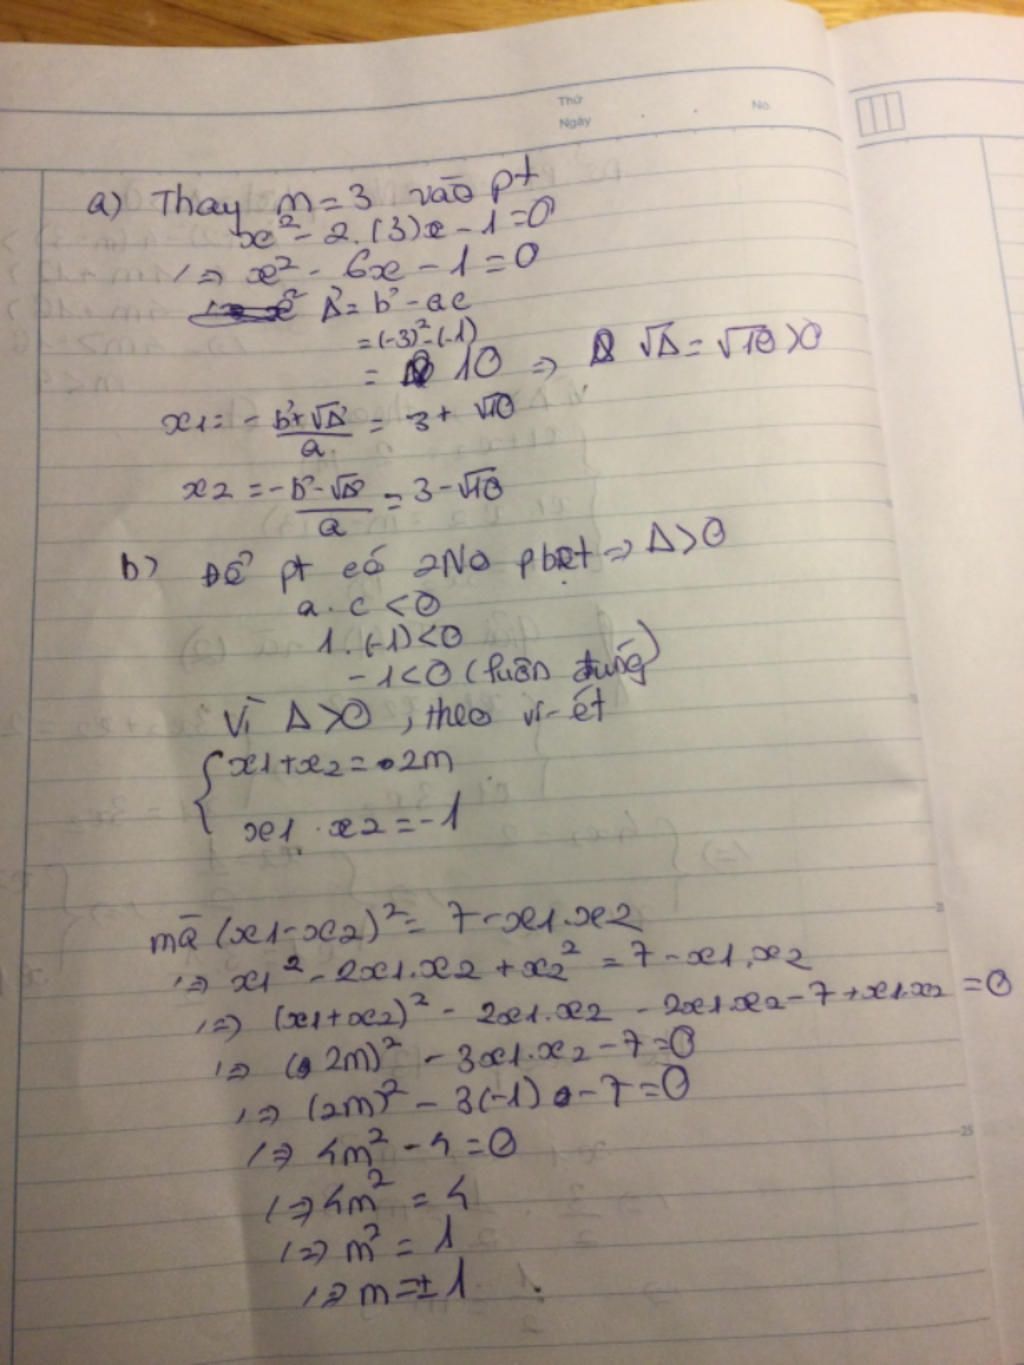 Thứ
Ngày
No.
a) Thay m = 3 vào pt
x² - 2.(3)x - 1 = 0
<=> x² - 6x - 1 = 0
Δ' = b'² - ac
= (-3)² - (-1)
= 10 => √Δ = √10 > 0
x1 = -b' + √Δ' / a = 3 + √10
x2 = -b' - √Δ' / a = 3 - √10
b) Để pt có 2No pbệt => Δ > 0
a . c < 0
1 . (-1) < 0
-1 < 0 (luôn đúng)
Vì Δ > 0 , theo vi-ét
{ x1 + x2 = 2m
x1 . x2 = -1
mà (x1 - x2)² = 7 - x1.x2
<=> x1² - 2x1.x2 + x2² = 7 - x1.x2
<=> (x1 + x2)² - 2x1.x2 - 2x1.x2 - 7 + x1.x2 = 0
<=> (2m)² - 3x1.x2 - 7 = 0
<=> (2m)² - 3(-1) - 7 = 0
<=> 4m² - 4 = 0
<=> 4m² = 4
<=> m² = 1
<=> m = ±1